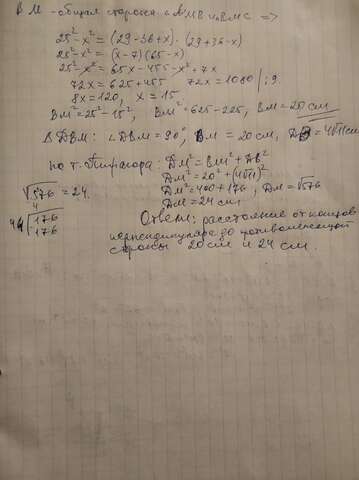 BM - общая сторона с ΔАМВ и ΔВМС =>
25²-x² = (29-36+x)·(29+36-x)
25²-x² = (x-7)(65-x)
25²-x² = 65x-455-x²+7x
72x = 625+455 72x = 1080 | :9
8x = 120, x = 15
BM² = 25²-15², BM² = 625-225, BM = 20 см
Δ ДВМ: ∠ДВМ = 90°, BM = 20 см, ДВ = 4√11 см
по т. Пифагора: ДМ² = ВМ² + ДВ²
ДМ² = 20² + (4√11)²
√576 = 24. ДМ² = 400 + 176, ДМ = √576
ДМ = 24 см
176
176
Ответ: расстояние от концов
перпендикуляра до противолежащей
стороны 20 см и 24 см.